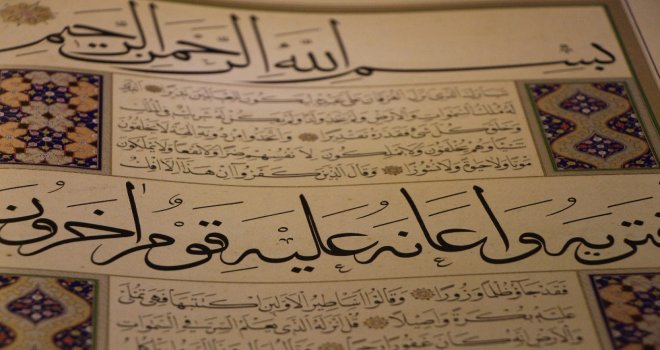 بِسْمِ اللهِ الرَّحْمٰنِ الرَّحِيمِ
تبارك الذي نزل الفرقان على عبده ليكون للعالمين نذيرا الذي
له ملك السموات والارض ولم يتخذ ولدا ولم يكن له شريك في الملك
وخلق كل شيء فقدره تقديرا واتخذوا من دونه الهة لا يخلقون
شيئا وهم يخلقون ولا يملكون لانفسهم ضرا ولا نفعا ولا يملكون
موتا ولا حيوة ولا نشورا وقال الذين كفروا ان هذا الا افك
فتريه وَاَعَانَهُ عَلَيْهِ قَوْمٌ اٰخَرُونَ
فقد جاؤ ظلما وزورا وقالوا اساطير الاولين اكتتبها فهي تملى
عليه بكرة واصيلا قل انزله الذي يعلم السر في السموات
والارض انه كان غفورا رحيما